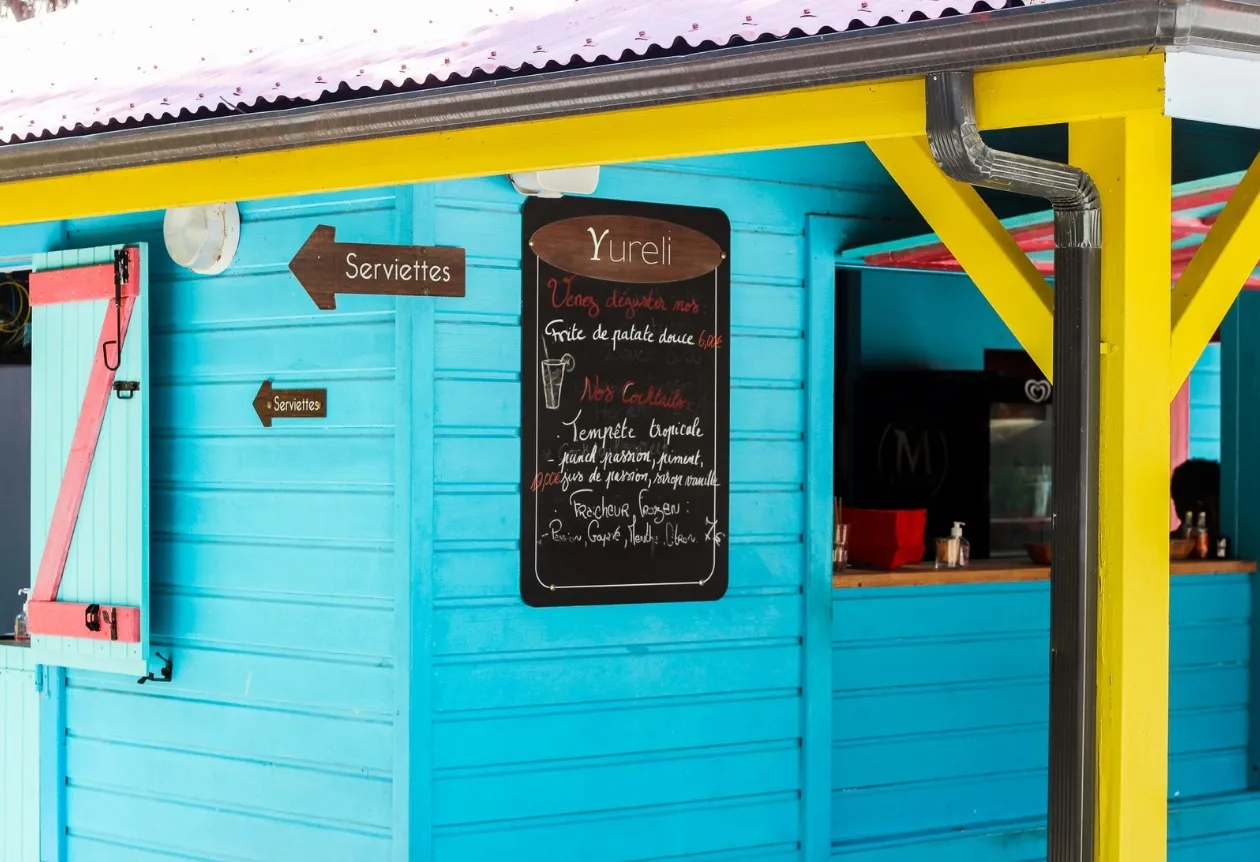 Serviettes
Serviettes
Yureli
Venez déguster nos :
Frite de patate douce 6,00€
Nos Cocktails:
. Tempête tropicale
- punch passion, piment,
10,00€ jus de passion, sirop vanille
. Fraicheur, Frozen :
- Passion, Goyave, Menthe, Citron. 7€
M